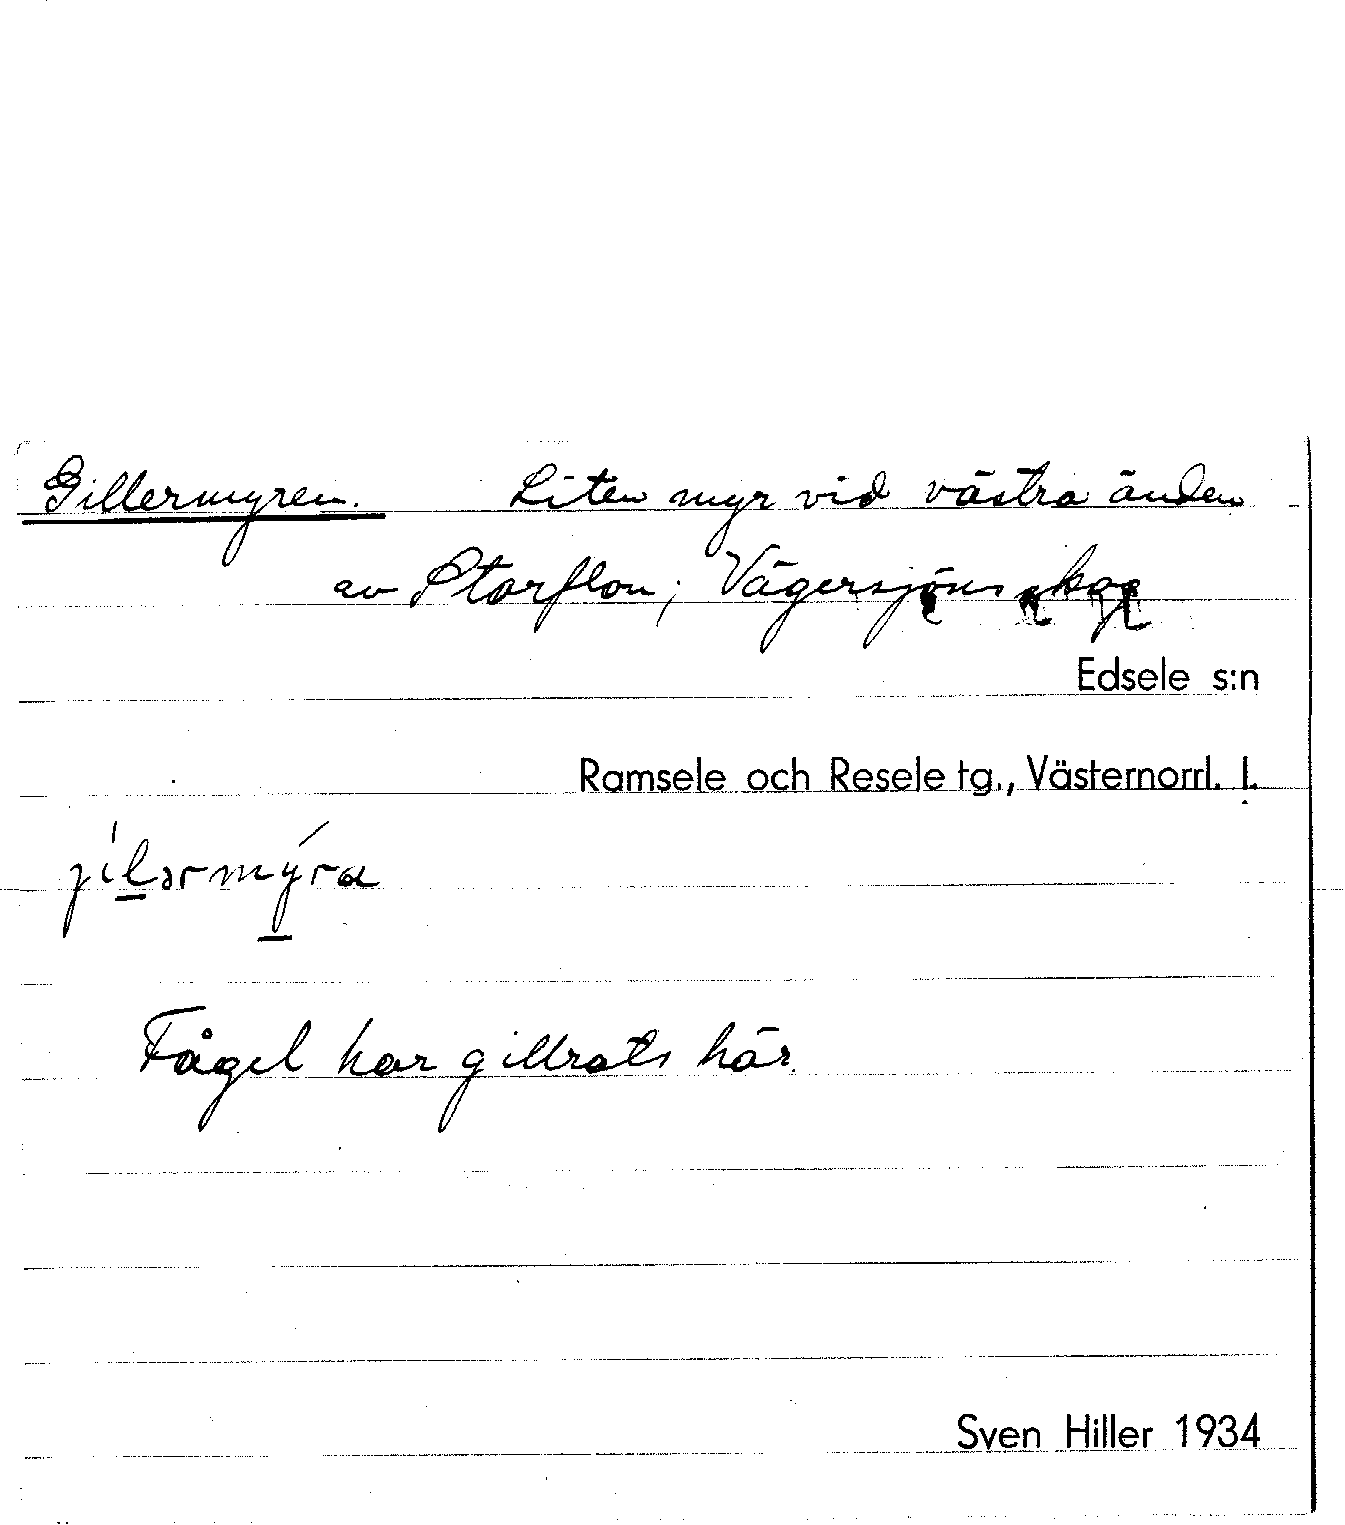 Gillermyren. Liten myr vid västra änden
av Storflon; Vägersjöns skog
Edsele s:n
Ramsele och Resele tg., Västernorrl. l.
jílərmýra
Fågel har gillrats här.
Sven Hiller 1934